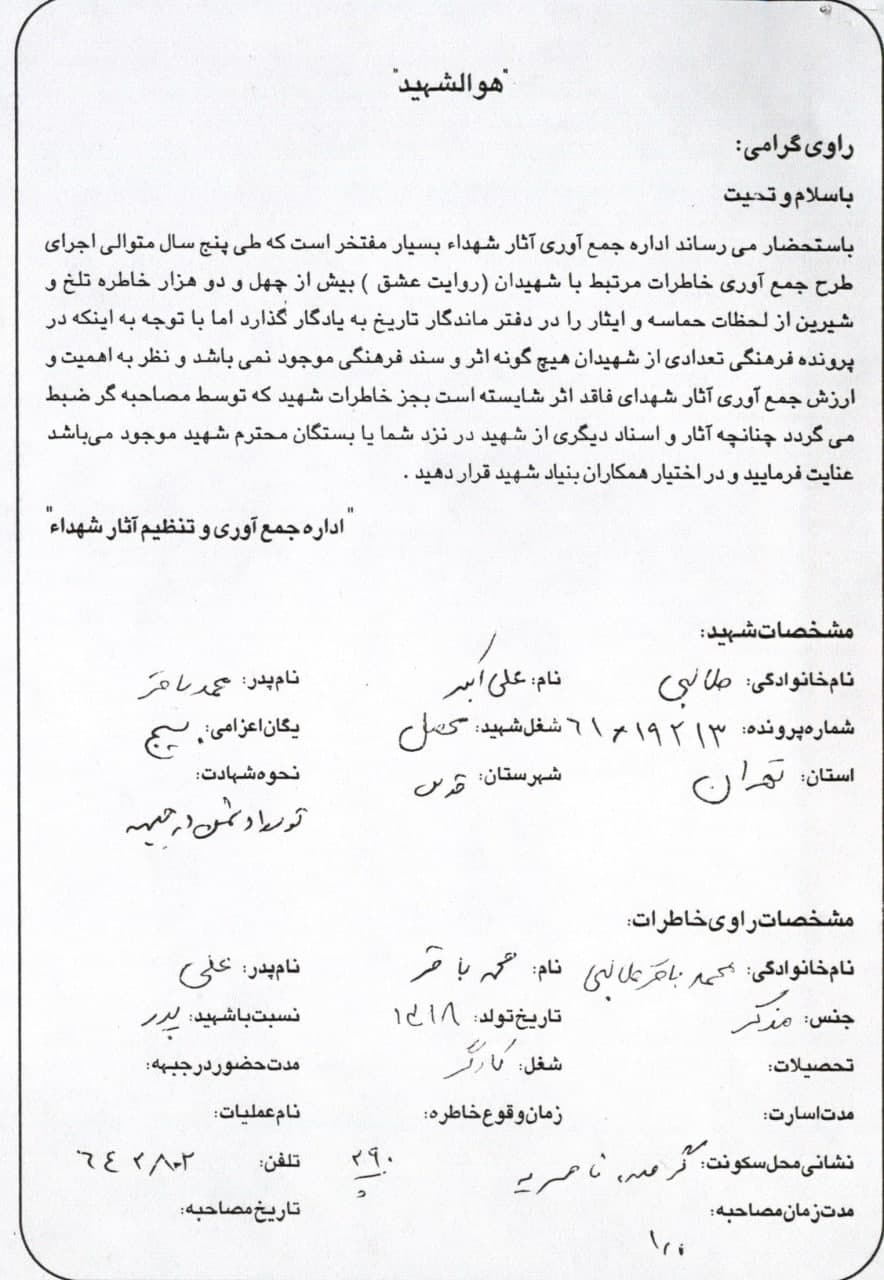 "هوالشهید"
راوی گرامی:
باسلام و تحیت
باستحضار می رساند اداره جمع آوری آثار شهداء بسیار مفتخر است که طی پنج سال متوالی اجرای
طرح جمع آوری خاطرات مرتبط با شهیدان (روایت عشق ) بیش از چهل و دو هزار خاطره تلخ و
شیرین از لحظات حماسه و ایثار را در دفتر ماندگار تاریخ به یادگار گذارد اما با توجه به اینکه در
پرونده فرهنگی تعدادی از شهیدان هیچ گونه اثر و سند فرهنگی موجود نمی باشد و نظر به اهمیت و
ارزش جمع آوری آثار شهدای فاقد اثر شایسته است بجز خاطرات شهید که توسط مصاحبه گر ضبط
می گردد چنانچه آثار و اسناد دیگری از شهید در نزد شما یا بستگان محترم شهید موجود می‌باشد
عنایت فرمایید و در اختیار همکاران بنیاد شهید قرار دهید .
"اداره جمع آوری و تنظیم آثار شهداء"
مشخصات شهید:
نام خانوادگی: طالبی نام: علی اکبر نام پدر: محمد باقر
شماره پرونده: شغل شهید: محصل یگان اعزامی: بسیج
استان: تهران شهرستان: قدس نحوه شهادت:
توسط دشمن در جبهه
مشخصات راوی خاطرات:
نام خانوادگی: محمد باقر طالبی نام: محمد باقر نام پدر: علی
جنس: مذکر تاریخ تولد: ۱۳۱۸ نسبت باشهید: پدر
تحصیلات: شغل: کارگر مدت حضور در جبهه:
مدت اسارت: زمان وقوع خاطره: نام عملیات:
نشانی محل سکونت: ناصریه ۲۹۰ تلفن:
مدت زمان مصاحبه: تاریخ مصاحبه: